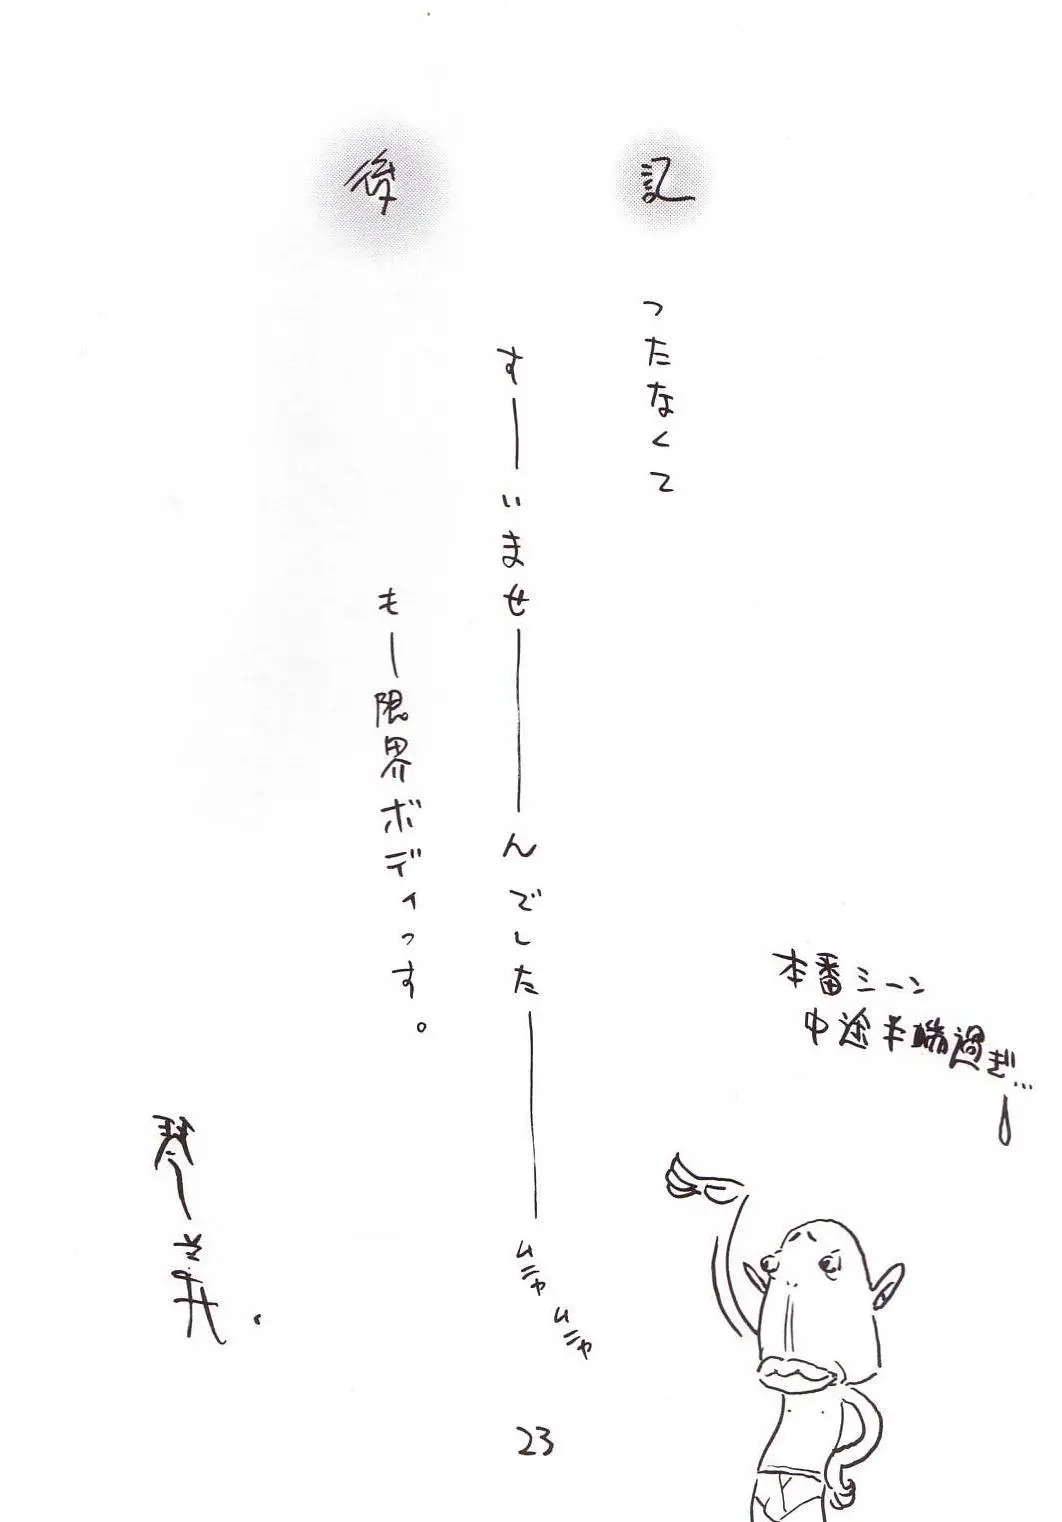 後記
つたなくて
すーいませーんでしたー
ムニャムニャ
もー限界ボディっす。
本番シーン
中途半端過ぎ…
23